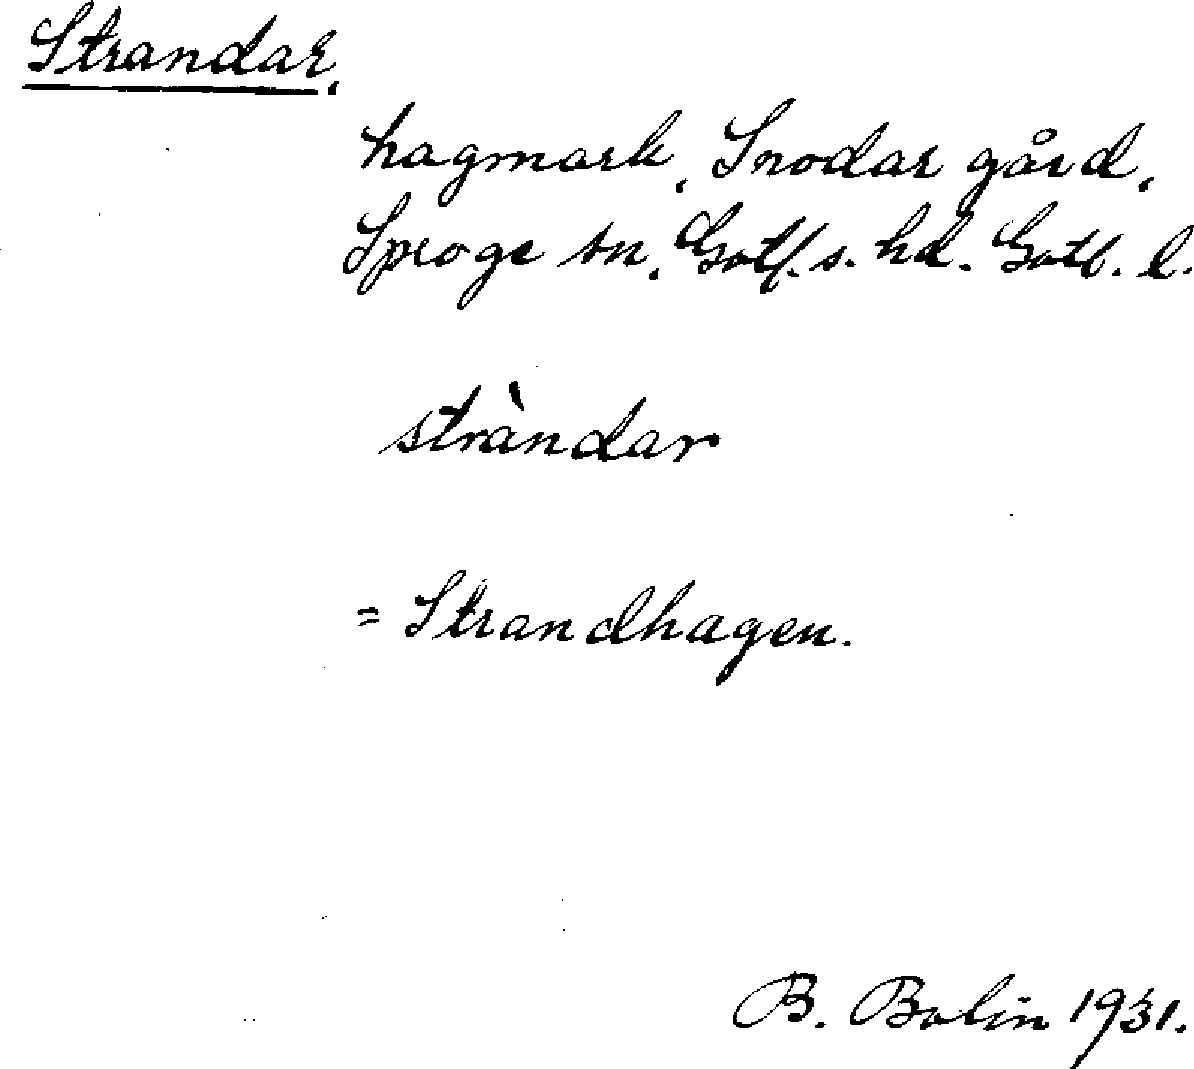 Strandar,
hagmark, Snodar gård,
Sproge sn, Gotl. s. hd. Gotl. l.
stràndar
= Strandhagen.
B. Bolin 1931.